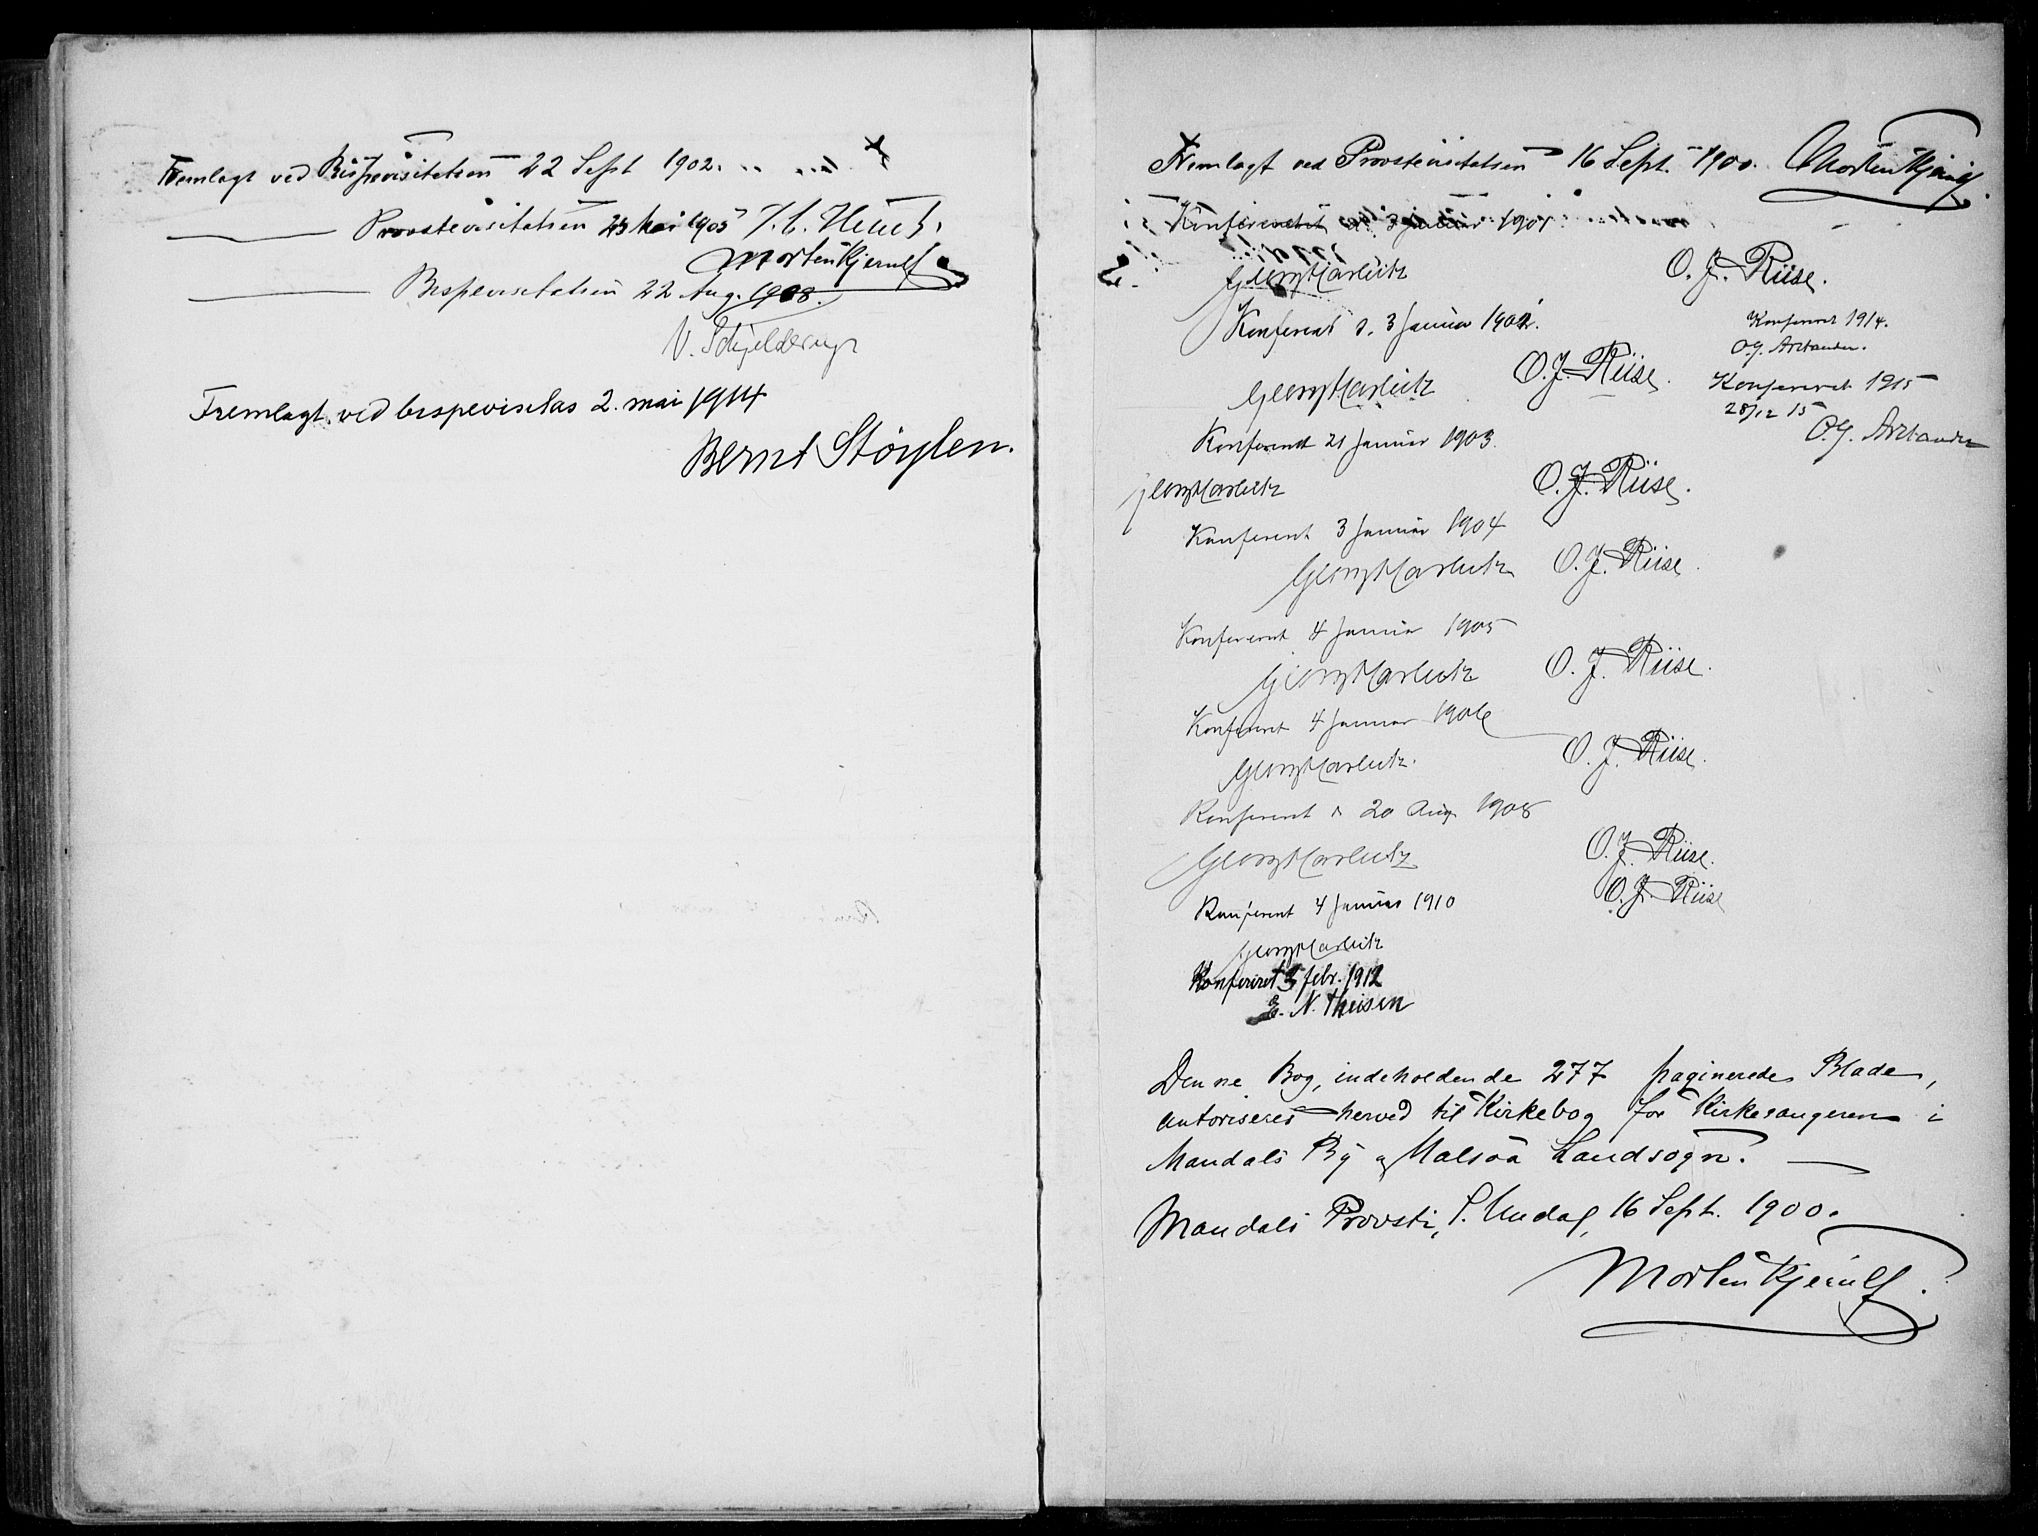 Fremlagt ved Bispevisitatsen 22 Sept 1902.
J. C. Heuch.
Provstevisitatsen 23 Mai 1905
Morten Kjerulf
Bispevisitatsen 22 Aug. 1908.
V. Schjelderup
Fremlagt ved bispevisitas 2. mai 1914
Bernt Støylen.
Fremlagt ved Provstevisitatsen 16 Sept. 1900. Morten Kjerulf.
Konfereret d. 3 Januar 1901
O. J. Riise.
Konfereret d. 3 Januar 1902.
O. J. Riise.
Konfereret 21 Januar 1903.
O. J. Riise.
Konfereret 3 Januar 1904
O. J. Riise.
Konfereret 4 Januar 1905
O. J. Riise.
Konfereret 4 Januar 1906
O. J. Riise.
Konfereret d 20 Aug 1908
O. J. Riise.
Konfereret 4 Januar 1910
O. J. Riise
Konfereret 3 febr. 1912
E. N. Theisen
Konfereret 1914.
Konfereret 1915
28/12 15
Denne Bog, indeholdende 277 paginerede Blade,
autoriseres herved til Kirkebog for Kirkesangeren i
Mandals By og Halsaa Landsogn.
Mandals Provsti, S. Undal, 16 Sept. 1900.
Morten Kjerulf.